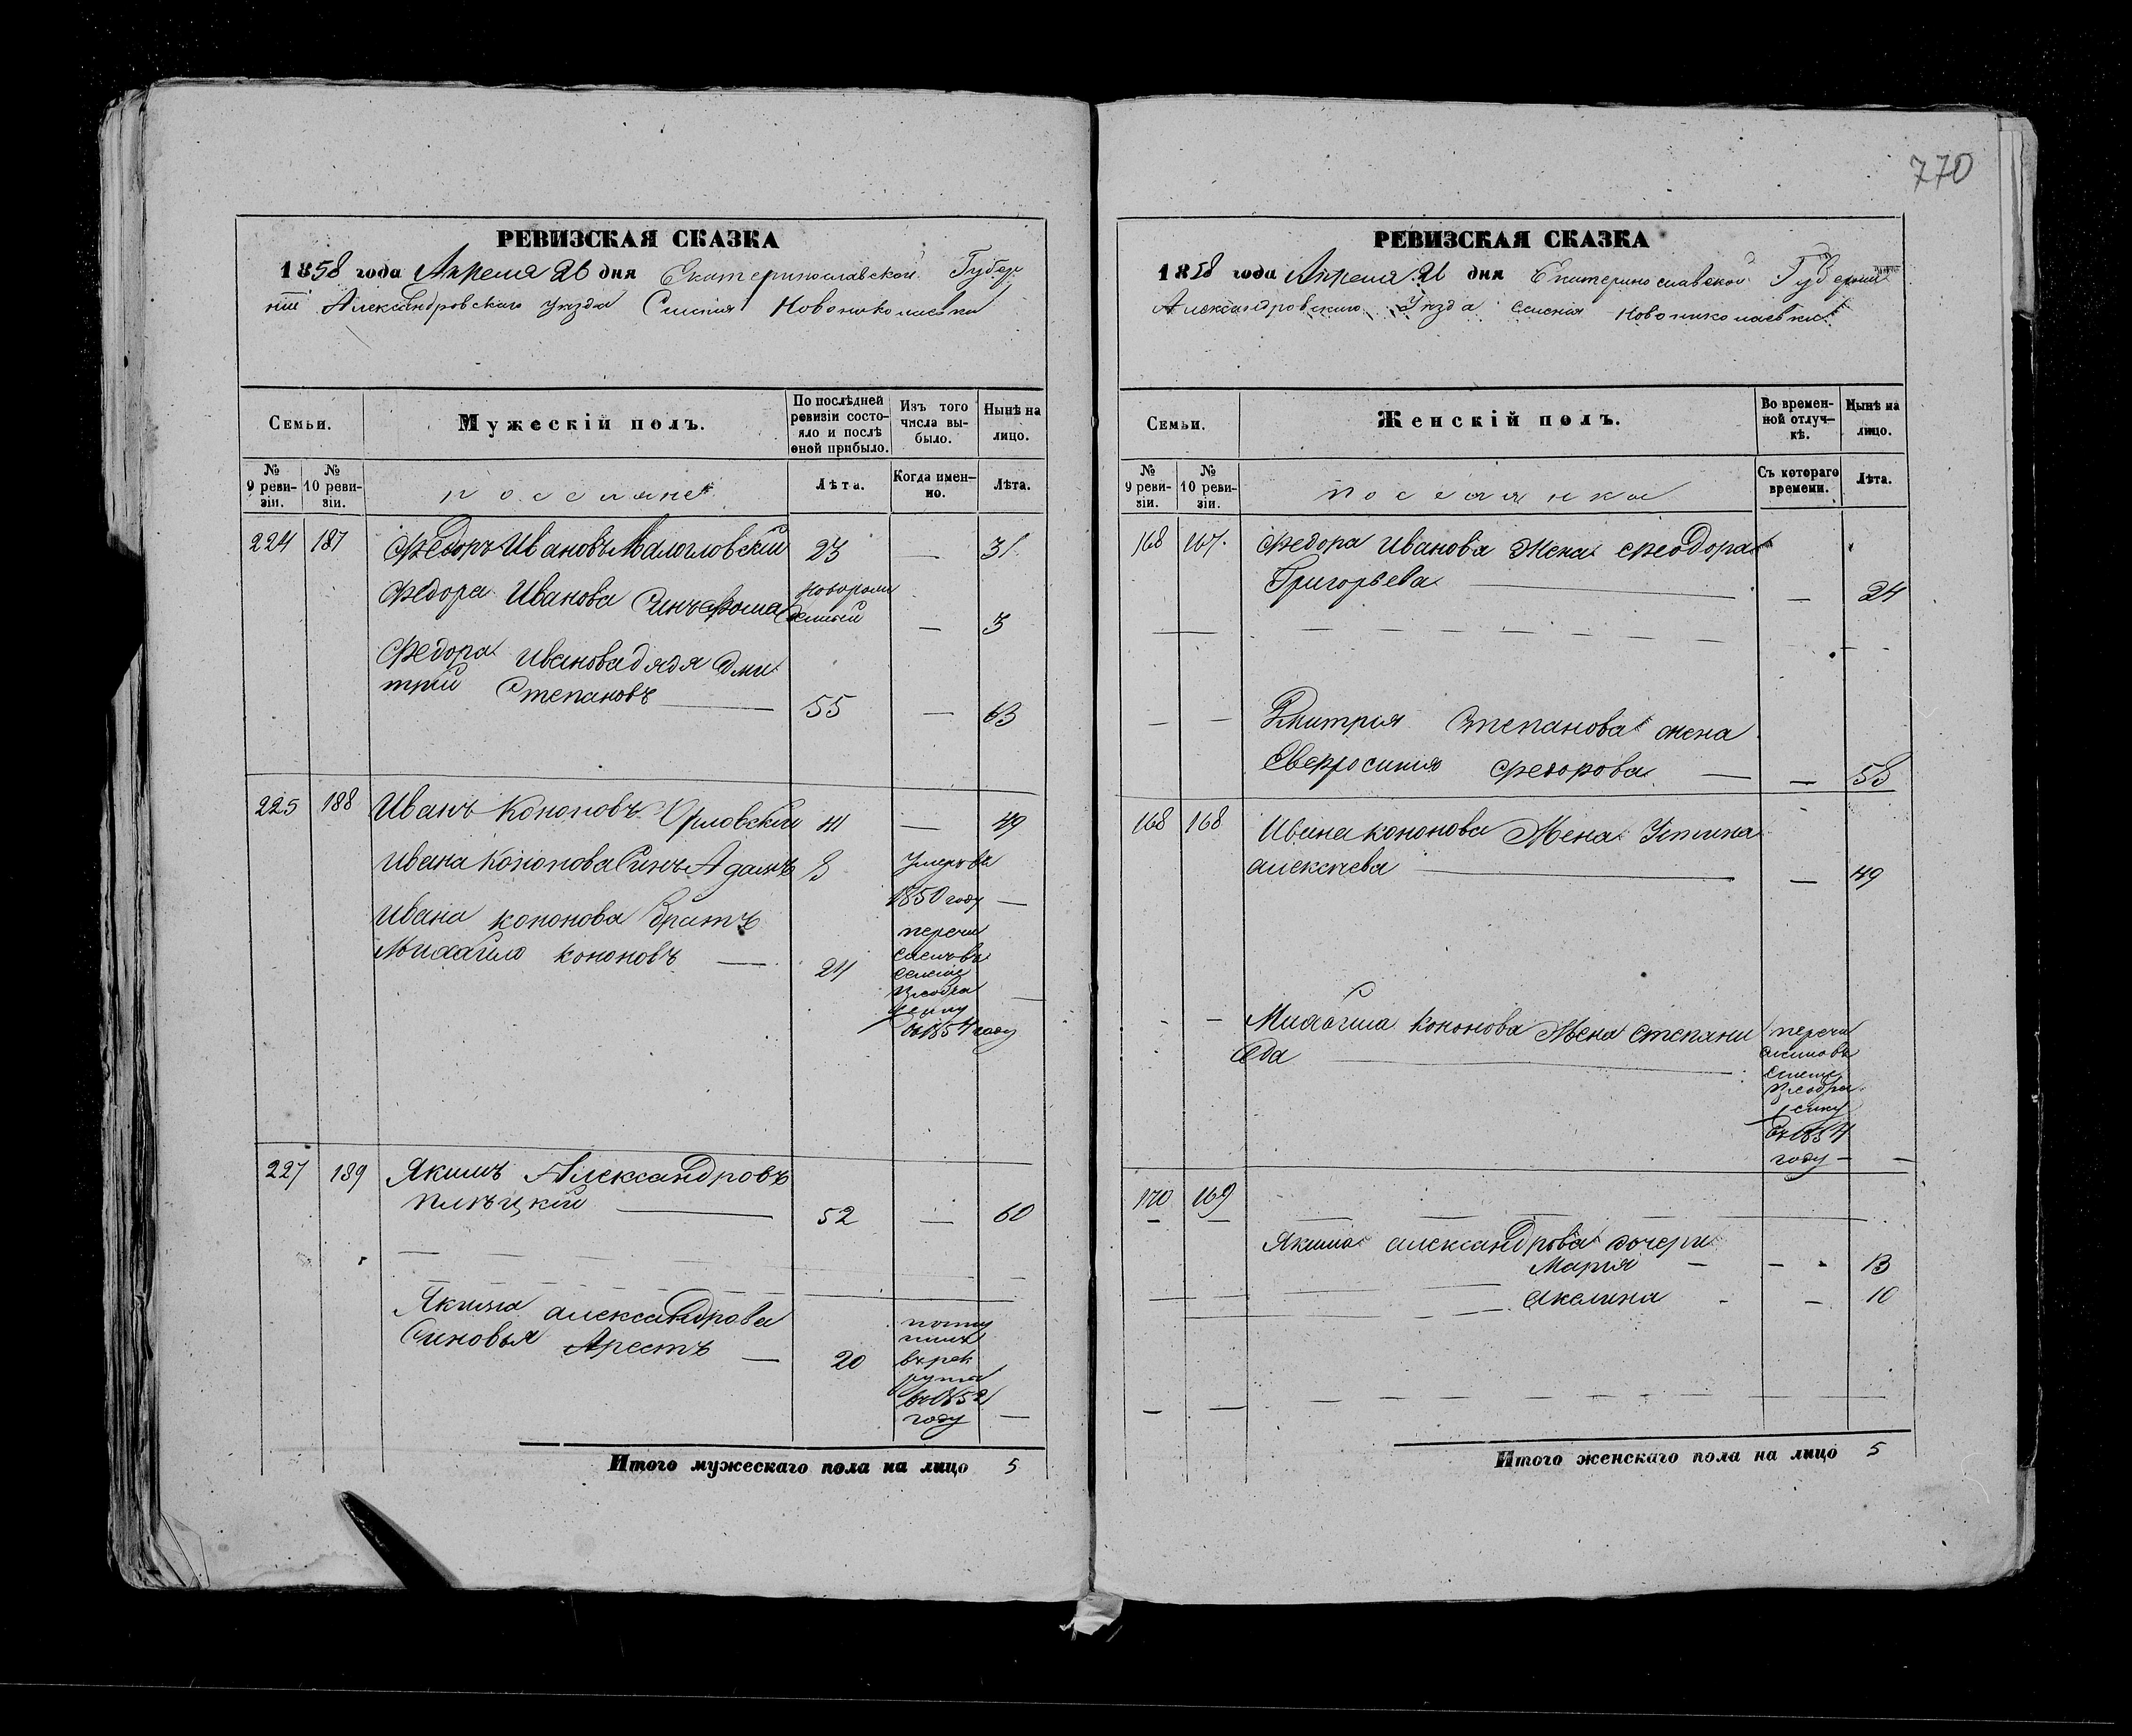 770
РЕВИЗСКАЯ СКАЗКА
1858 года Апреля 26 дня Екатеринославской Губер
нiи Александровскаго уезда Селенiя Новониколаевки
Семьи.
Мужескiй полъ.
По послѣдней ревизiи состо-
яло и послѣ
оной прибыло.
Изъ того
числа вы-
было.
Нынѣ на
лицо.
№
9 реви-
зiи.
№
10 реви-
зiи.
поселяне
Лѣта.
Когда имен-
но.
Лѣта.
224 187 Федоръ Ивановъ 23 — 31
Федора Иванова Синъ Фома новорож
денный — 3
Федора Иванова дядя Дми
трий Степановъ — 55 — 63
225 188 Иванъ Кононовъ Орловскiй 41 — 49
Ивана Кононова Синъ Адамъ 3 умеръ въ
1850 году —
Ивана кононова братъ
Михайло кононовъ — 24 перечи
сленъ въ
въ 1854 году —
227 189 Якимъ Александровъ
52 — 60
Якима александрова
Синовья Арестъ — 20
въ рек
рута
въ 1852
году —
Итого мужескаго пола на лицо 5
РЕВИЗСКАЯ СКАЗКА
1858 года Апреля 26 дня Екатеринославской Губернiи
Александровскаго Уезда селенiя Новониколаевки
Семьи.
Женскiй полъ.
Во времен-
ной отлуч-
кѣ.
Нынѣ на
лицо.
№
9 реви-
зiи.
№
10 реви-
зiи.
поселянки
Съ котораго
времени.
Лѣта.
168 167 Федора Иванова Жена Феодора
Григорьева — — 24
Дмитрия Степанова жена
Евфросиния Федорова — — 55
168 168 Ивана кононова Жена
алексеева — — 49
Михайла Кононова Жена Степани
да — перечи
въ 1854
году —
170 169
Якима александрова дочери
Мария — — 13
Акелина - — 10
Итого женскаго пола на лицо 5